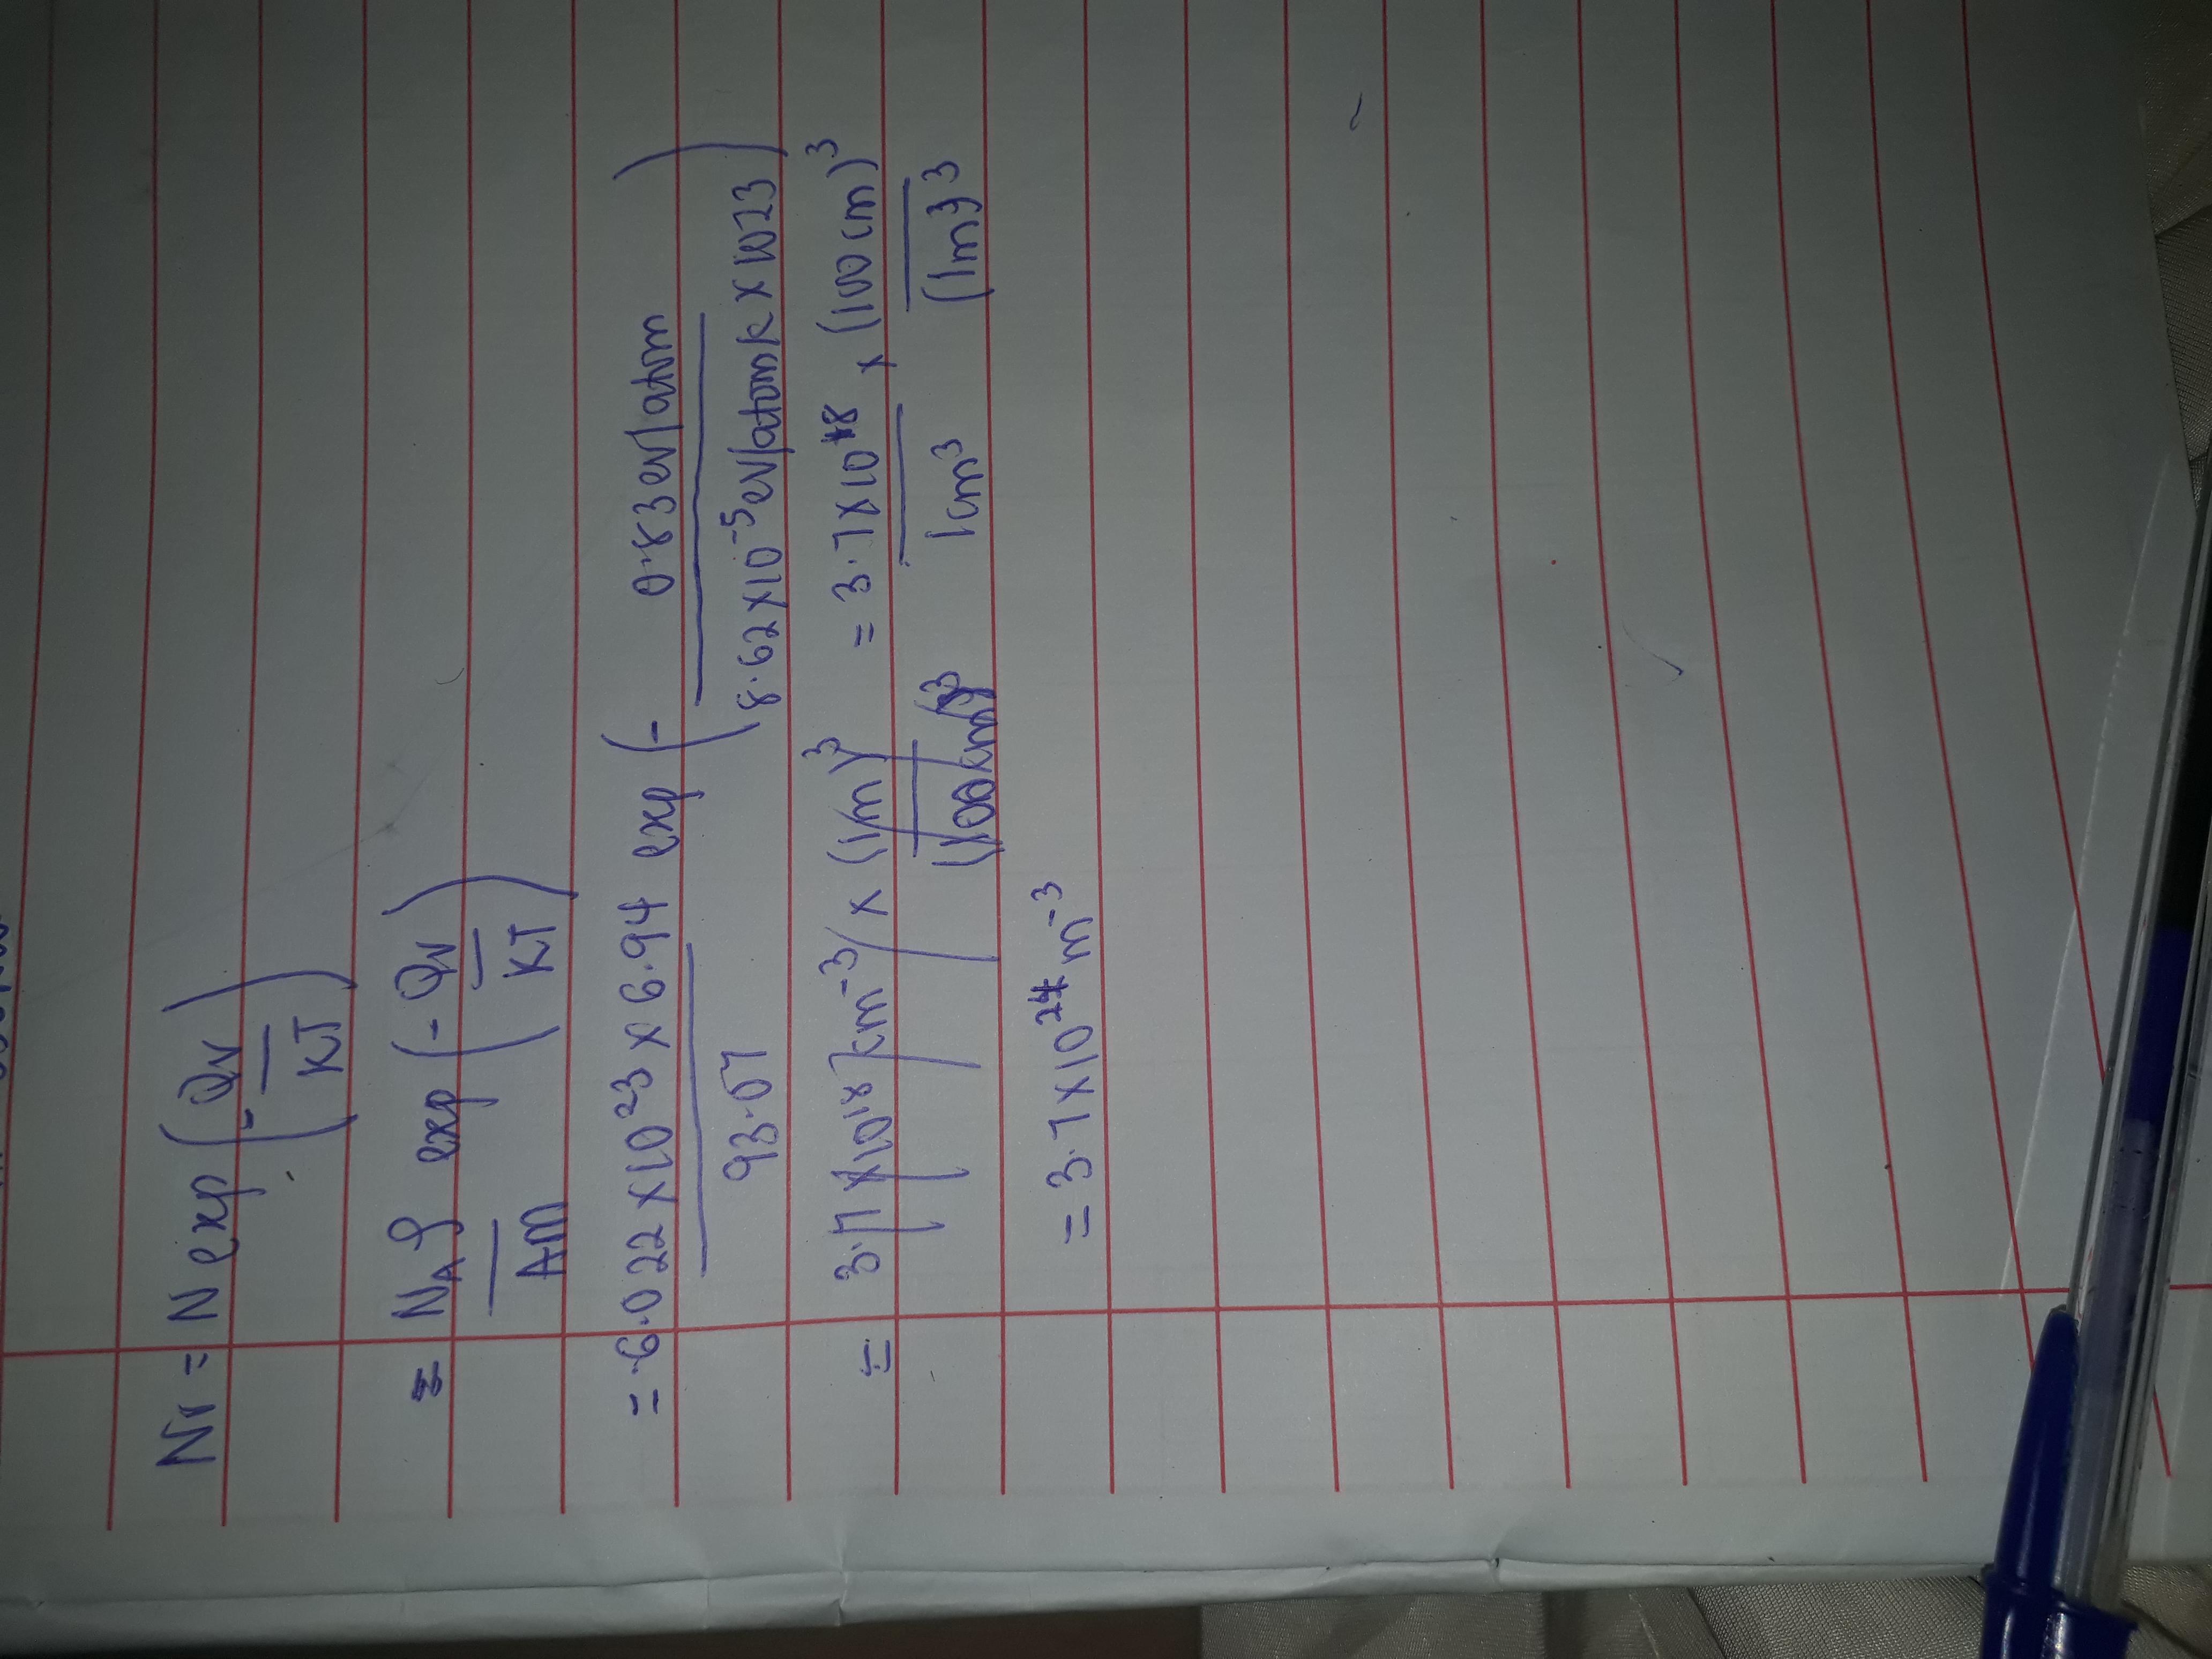 Nv = N exp (- Qv / KT)
= NAρ / Am exp (- Qv / KT)
= 6.022 x 10²³ x 6.94 / 93.07 exp (- 0.83 eV/atm / 8.62 x 10⁻⁵ eV/atomK x 1023)
= 3.7 x 10¹⁸ cm⁻³ x (1m)³ / (100cm)³ = 3.7 x 10¹⁸ / 1cm³ x (100 cm)³ / (1m)³
= 3.7 x 10²⁴ m⁻³